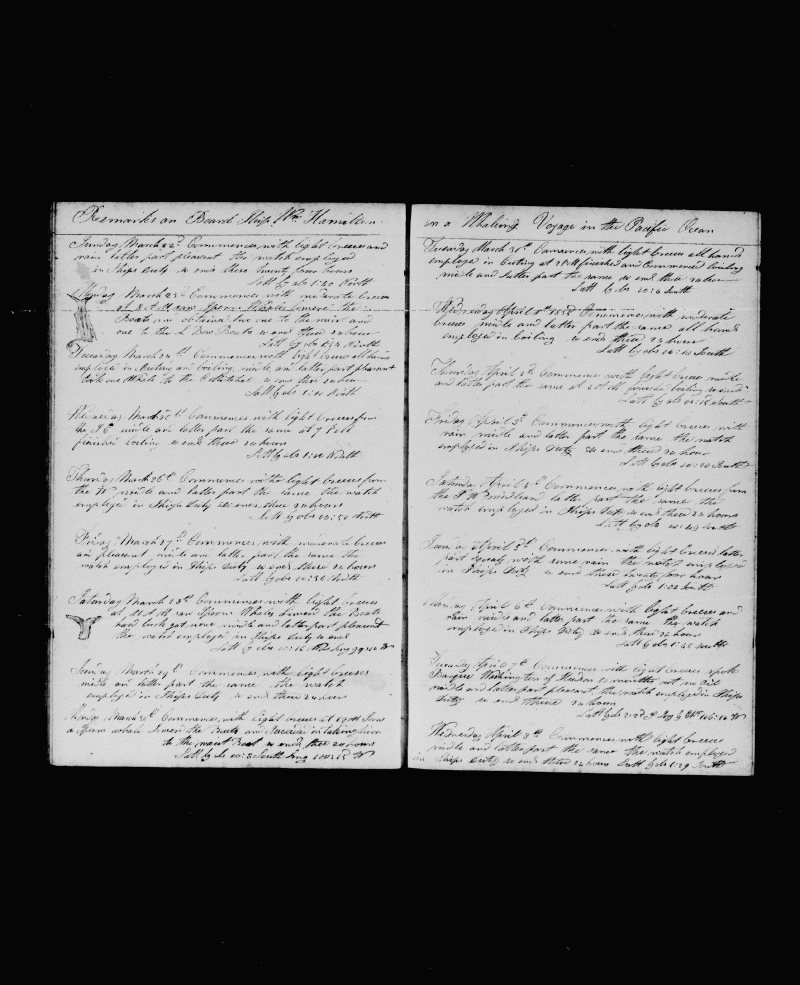 Remarks on Board Ship Wm Hamilton
Sunday March 22d Commences with light breeses and
rain latter part pleasant the watch employed
in Ships Duty so ends these twenty four hours
Latt by obs 1:20 North
Monday March 23d Commences with moderate breeses
at 8 AM saw Sperm Whales lowered the
Boats and obtained two one to the waist and
one to the L Bow Boats so ends these 24 hours
Latt by obs North
Tuesday March 24th Commences with light breeses all hands
employed in Cutting and boiling midle and latter part pleasant
took one Whale to the so ends these 24 hours
Latt by obs 1:10 North
Wednesday March 25th Commences with light breeses from
the midle and latter part the same at 7 PM
finished boiling so ends these 24 hours
Latt by obs 1:00 North
Thursday March 26th Commences with light breeses from
the W midle and latter part the same the watch
employed in Ships Duty so ends these 24 hours
Latt by obs 00:50 North
Friday March 27th Commences with moderate breeses
and pleasant midle and latter part the same the
watch employed in Ships Duty so ends these 24 hours
Latt by obs 00:36 North
Saturday March 28th Commences with light breeses
at AM saw Sperm Whales lowered the Boats
hard luck got none midle and latter part pleasant
the watch employed in Ships Duty so ends
Latt by obs 00:16 Long 99:50 W
Sunday March 29th Commences with light breeses
midle and latter part the same the watch
employed in Ships Duty so ends these 24 hours
Monday March 30th Commences with light breeses at Saw
a Sperm whale Lowered the Boats and Sucseided in taking him
to the waist Boat so ends these 24 hours
Latt by obs 00:8 South Long W
on a Whaling Voyage in the Pacific Ocean
Tuesday March 31st Commences with light breeses all hands
employed in Cutting at 3 PM finished and Commenced boiling
midle and latter part the same so ends these 24 hours
Latt by obs 00:6 South
Wednesday April 1st Commences with moderate
breeses midle and latter part the same all hands
employed in boiling so ends these 24 hours
Latt by obs 00:10 South
Thursday April 2d Commences with light breeses midle
and latter part the same at PM finished boiling so ends
Latt by obs 00:15 South
Friday April 3d Commences with light breeses with
rain midle and latter part the same the watch
employed in Ships Duty so ends these 24 hours
Latt by obs 00:20 South
Saturday April 4th Commences with light breeses from
the latter part the same the
watch employed in Ships Duty so ends these 24 hours
Latt by obs 00:49 South
Sunday April 5th Commences with light breeses latter
part squaly with some rain the watch employed
in Ships Duty so ends these twenty four hours
Latt by obs 1:02 South
Monday April 6th Commences with light breeses and
rain midle and latter part the same the watch
employed in Ships Duty so ends these 24 hours
Latt by obs 1:40 South
Tuesday April 7th Commences with light breeses spok
Barque Washington of Hudson months out no oil
midle and latter part pleasant the watch employed in Ships
Duty so ends these 24 hours
Latt by obs W
Wednesday April 8th Commences with light breeses
midle and latter part the same the watch employed
in Ships Duty so ends these 24 hours Latt by obs 1:29 South